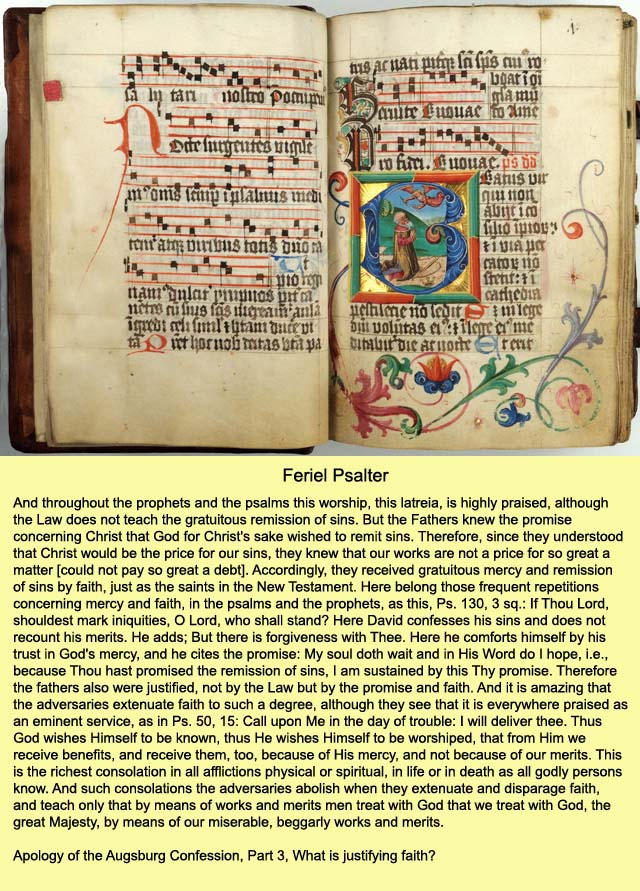 sa lu tari nostro
Nocte surgentes vigile
oms semp i psalmis medi
atqz viribus totis dno ca
pio regi
tris ac nati sci sps cui
Venite Euouae
fidei. Euouae. ps dd
Beatus vir
qui non
abijt i co
silio ipior
& i via pec
cator no
stetit: & i
cathedra
pestilecie no sedit i lege
dni voluntas ei: & i lege ei me
ditabit die ac nocte Et erit
Feriel Psalter
And throughout the prophets and the psalms this worship, this latreia, is highly praised, although
the Law does not teach the gratuitous remission of sins. But the Fathers knew the promise
concerning Christ that God for Christ's sake wished to remit sins. Therefore, since they understood
that Christ would be the price for our sins, they knew that our works are not a price for so great a
matter [could not pay so great a debt]. Accordingly, they received gratuitous mercy and remission
of sins by faith, just as the saints in the New Testament. Here belong those frequent repetitions
concerning mercy and faith, in the psalms and the prophets, as this, Ps. 130, 3 sq.: If Thou Lord,
shouldest mark iniquities, O Lord, who shall stand? Here David confesses his sins and does not
recount his merits. He adds; But there is forgiveness with Thee. Here he comforts himself by his
trust in God's mercy, and he cites the promise: My soul doth wait and in His Word do I hope, i.e.,
because Thou hast promised the remission of sins, I am sustained by this Thy promise. Therefore
the fathers also were justified, not by the Law but by the promise and faith. And it is amazing that
the adversaries extenuate faith to such a degree, although they see that it is everywhere praised as
an eminent service, as in Ps. 50, 15: Call upon Me in the day of trouble: I will deliver thee. Thus
God wishes Himself to be known, thus He wishes Himself to be worshiped, that from Him we
receive benefits, and receive them, too, because of His mercy, and not because of our merits. This
is the richest consolation in all afflictions physical or spiritual, in life or in death as all godly persons
know. And such consolations the adversaries abolish when they extenuate and disparage faith,
and teach only that by means of works and merits men treat with God that we treat with God, the
great Majesty, by means of our miserable, beggarly works and merits.
Apology of the Augsburg Confession, Part 3, What is justifying faith?